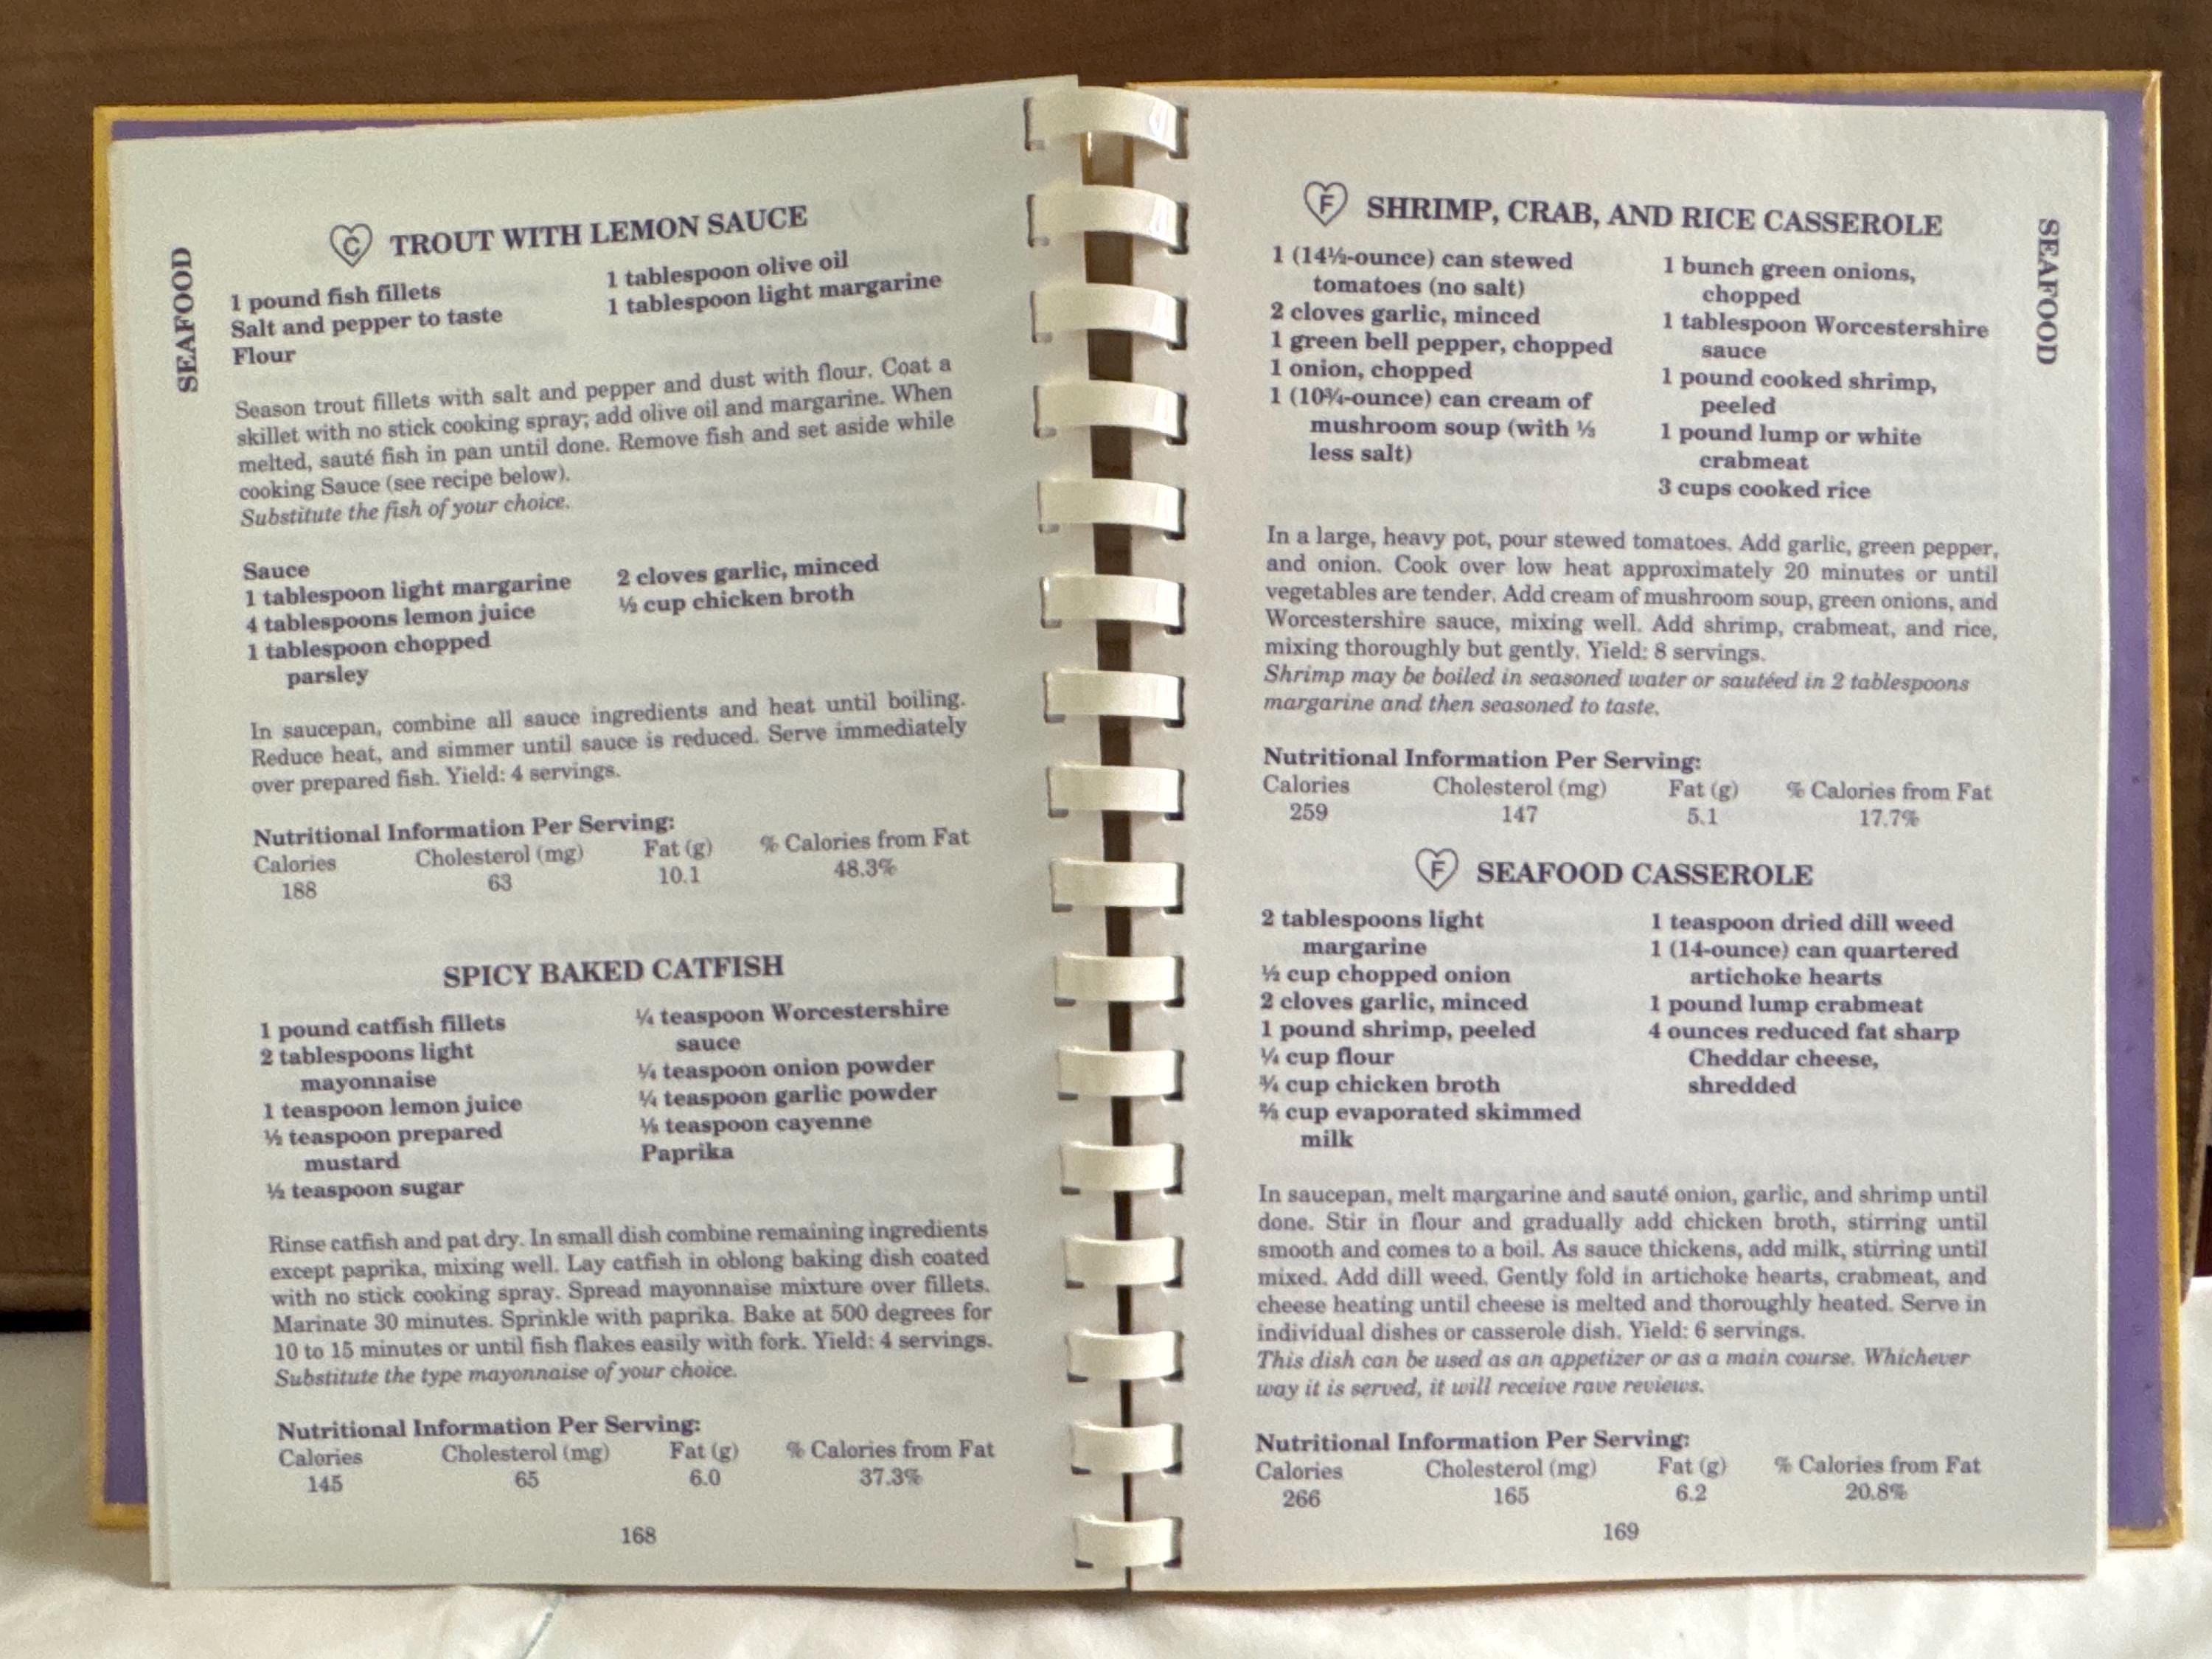 SEAFOOD
C TROUT WITH LEMON SAUCE
1 pound fish fillets
Salt and pepper to taste
Flour
1 tablespoon olive oil
1 tablespoon light margarine
Season trout fillets with salt and pepper and dust with flour. Coat a
skillet with no stick cooking spray; add olive oil and margarine. When
melted, sauté fish in pan until done. Remove fish and set aside while
cooking Sauce (see recipe below).
Substitute the fish of your choice.
Sauce
1 tablespoon light margarine
4 tablespoons lemon juice
1 tablespoon chopped
parsley
2 cloves garlic, minced
½ cup chicken broth
In saucepan, combine all sauce ingredients and heat until boiling.
Reduce heat, and simmer until sauce is reduced. Serve immediately
over prepared fish. Yield: 4 servings.
Nutritional Information Per Serving:
Calories Cholesterol (mg) Fat (g) % Calories from Fat
188 63 10.1 48.3%
SPICY BAKED CATFISH
1 pound catfish fillets
2 tablespoons light
mayonnaise
1 teaspoon lemon juice
½ teaspoon prepared
mustard
½ teaspoon sugar
¼ teaspoon Worcestershire
sauce
¼ teaspoon onion powder
¼ teaspoon garlic powder
⅛ teaspoon cayenne
Paprika
Rinse catfish and pat dry. In small dish combine remaining ingredients
except paprika, mixing well. Lay catfish in oblong baking dish coated
with no stick cooking spray. Spread mayonnaise mixture over fillets.
Marinate 30 minutes. Sprinkle with paprika. Bake at 500 degrees for
10 to 15 minutes or until fish flakes easily with fork. Yield: 4 servings.
Substitute the type mayonnaise of your choice.
Nutritional Information Per Serving:
Calories Cholesterol (mg) Fat (g) % Calories from Fat
145 65 6.0 37.3%
168
SEAFOOD
F SHRIMP, CRAB, AND RICE CASSEROLE
1 (14½-ounce) can stewed
tomatoes (no salt)
2 cloves garlic, minced
1 green bell pepper, chopped
1 onion, chopped
1 (10¾-ounce) can cream of
mushroom soup (with ⅓
less salt)
1 bunch green onions,
chopped
1 tablespoon Worcestershire
sauce
1 pound cooked shrimp,
peeled
1 pound lump or white
crabmeat
3 cups cooked rice
In a large, heavy pot, pour stewed tomatoes. Add garlic, green pepper,
and onion. Cook over low heat approximately 20 minutes or until
vegetables are tender. Add cream of mushroom soup, green onions, and
Worcestershire sauce, mixing well. Add shrimp, crabmeat, and rice,
mixing thoroughly but gently. Yield: 8 servings.
Shrimp may be boiled in seasoned water or sautéed in 2 tablespoons
margarine and then seasoned to taste.
Nutritional Information Per Serving:
Calories Cholesterol (mg) Fat (g) % Calories from Fat
259 147 5.1 17.7%
F SEAFOOD CASSEROLE
2 tablespoons light
margarine
½ cup chopped onion
2 cloves garlic, minced
1 pound shrimp, peeled
¼ cup flour
¾ cup chicken broth
⅔ cup evaporated skimmed
milk
1 teaspoon dried dill weed
1 (14-ounce) can quartered
artichoke hearts
1 pound lump crabmeat
4 ounces reduced fat sharp
Cheddar cheese,
shredded
In saucepan, melt margarine and sauté onion, garlic, and shrimp until
done. Stir in flour and gradually add chicken broth, stirring until
smooth and comes to a boil. As sauce thickens, add milk, stirring until
mixed. Add dill weed. Gently fold in artichoke hearts, crabmeat, and
cheese heating until cheese is melted and thoroughly heated. Serve in
individual dishes or casserole dish. Yield: 6 servings.
This dish can be used as an appetizer or as a main course. Whichever
way it is served, it will receive rave reviews.
Nutritional Information Per Serving:
Calories Cholesterol (mg) Fat (g) % Calories from Fat
266 165 6.2 20.8%
169